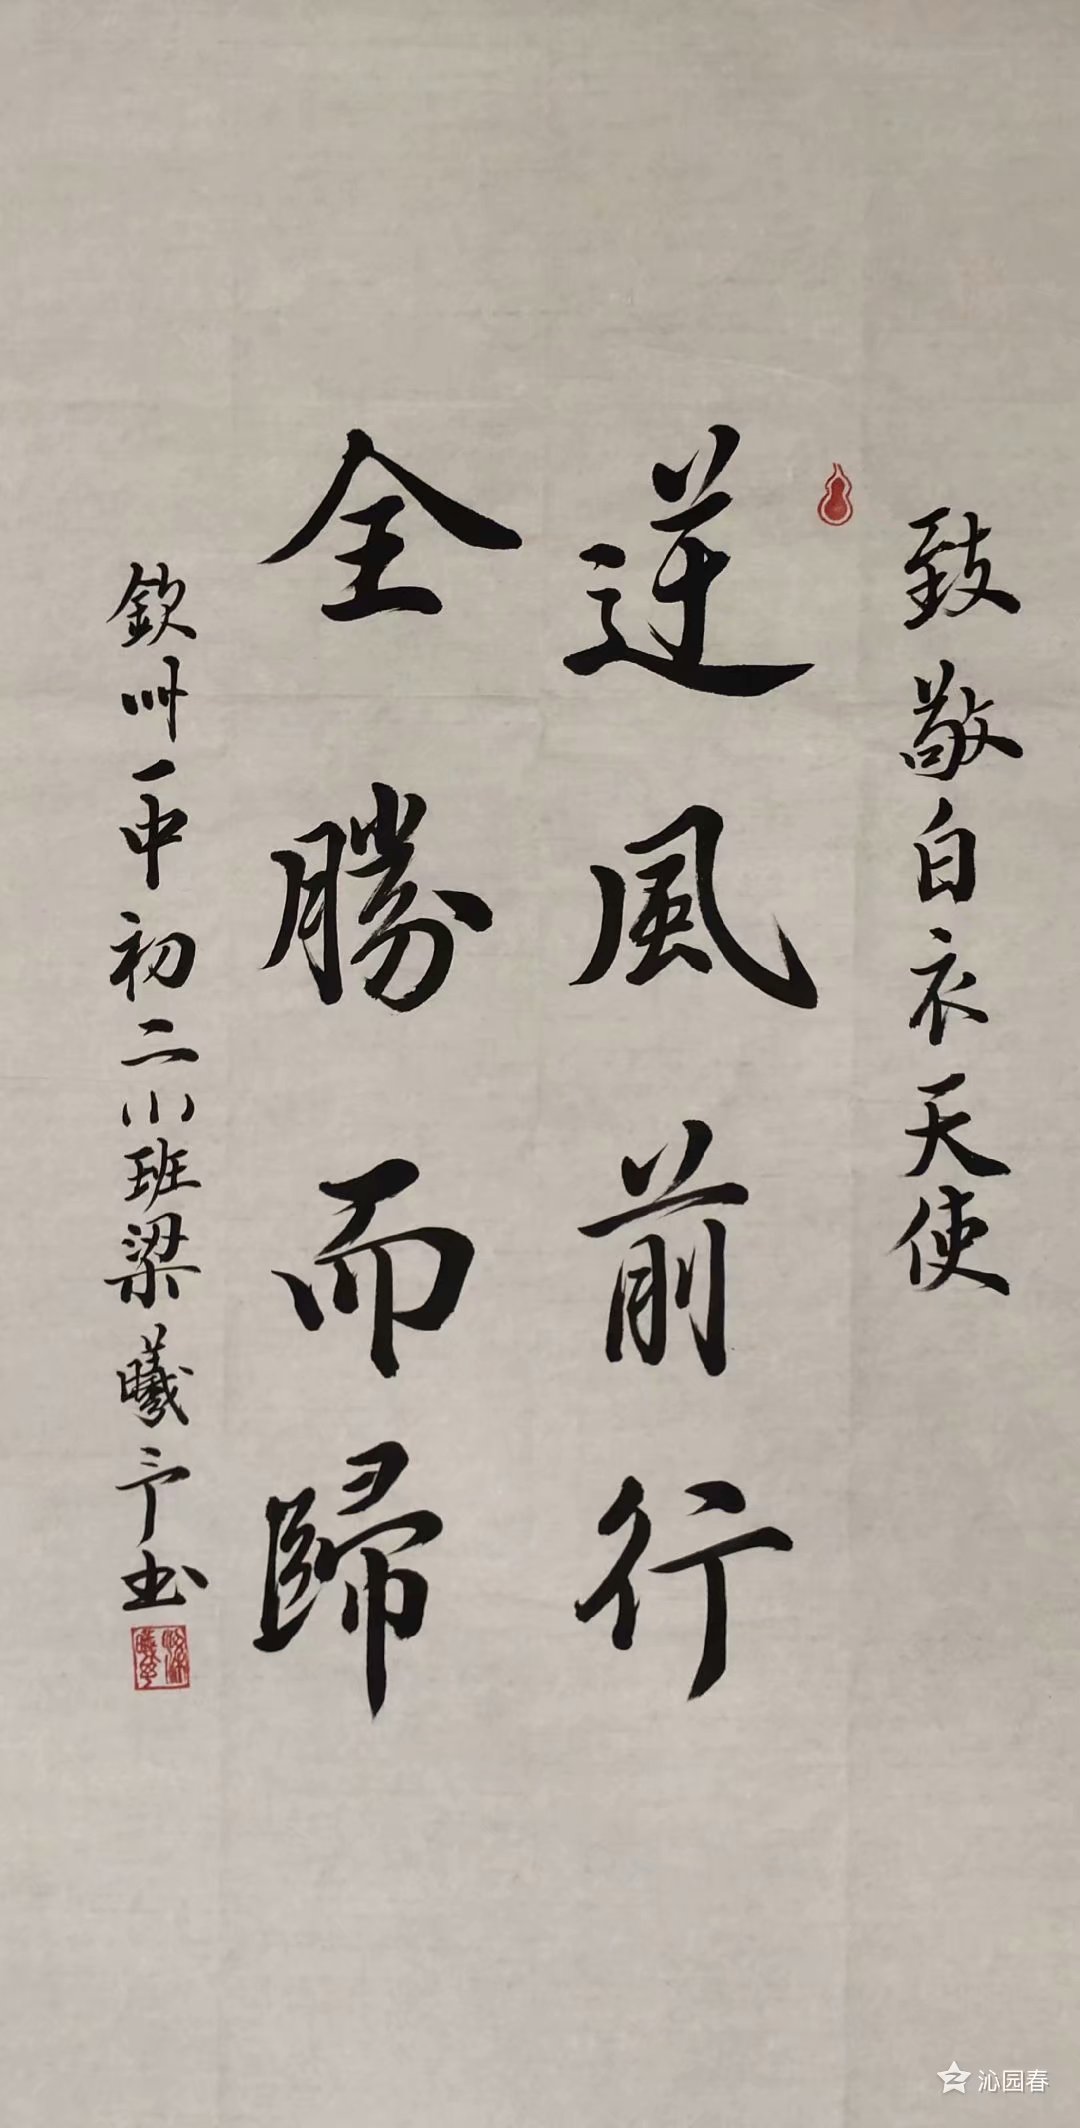 致敬白衣天使
逆風前行
全勝而歸
欽州一中初二小班梁曦予书
梁曦予
沁园春